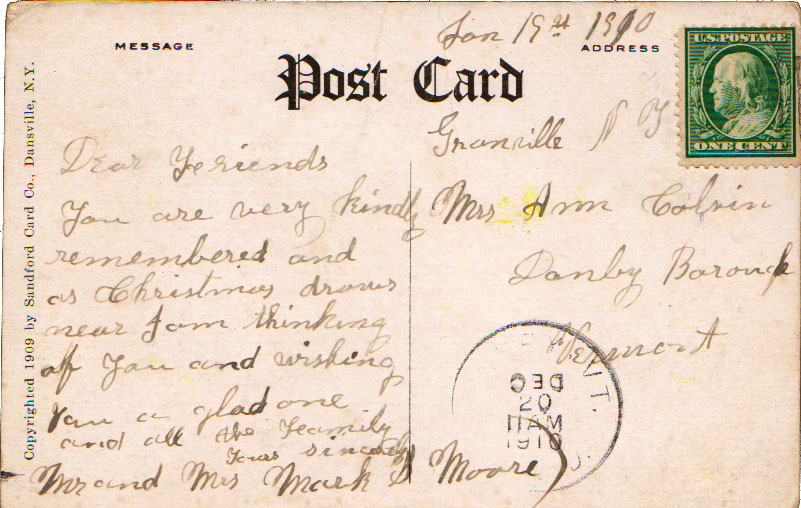 Jan 19th 1910
MESSAGE
ADDRESS
Post Card
U.S. POSTAGE
ONE CENT
Granville N Y
Dear Freinds
You are very kindly
remembered and
as Christmas draws
near I am thinking
of You and wishing
You a glad one
and all the Family
Yours sincerely
Mr and Mrs Mark S Moore
Mrs Ann Colvin
Danby Borough
Vermont
VT.
DEC
20
11 AM
1910
Copyrighted 1909 by Sandford Card Co., Dansville, N.Y.